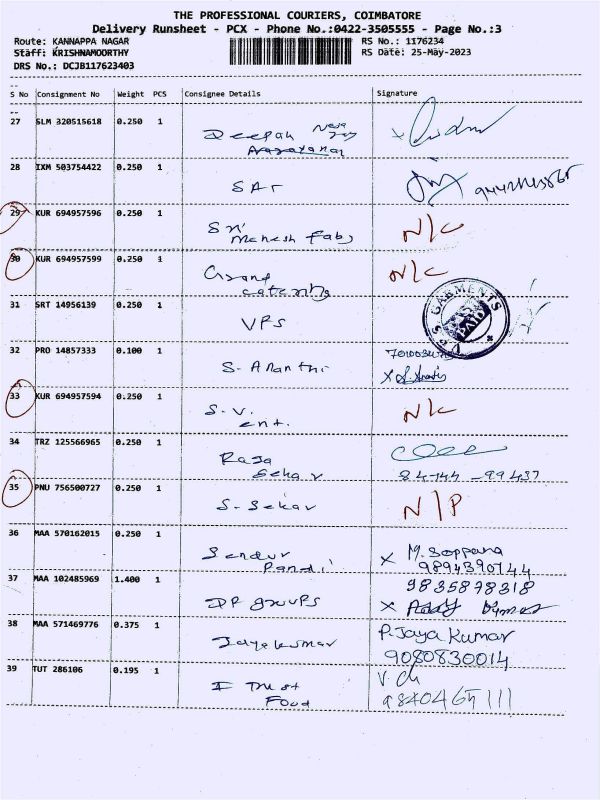 THE PROFESSIONAL COURIERS, COIMBATORE
Delivery Runsheet - PCX - Phone No.:0422-3505555 - Page No.:3
Route: KANNAPPA NAGAR RS No.: 1176234
Staff: KRISHNAMOORTHY RS Date: 25-May-2023
DRS No.: DCJB117623403
S No Consignment No Weight PCS Consignee Details Signature
27 SLM 320515618 0.250 1
Deepak
28 IXM 503754422 0.250 1
SAr
29 KUR 694957596 0.250 1
Sri N/C
Mahesh Fabs
30 KUR 694957599 0.250 1 N/C
Grand
catering
31 SRT 14956139 0.250 1 VPS GARMENTS
VPS
32 PRO 14857333 0.100 1
S. Ananthi X
33 KUR 694957594 0.250 1 N/C
S.V.
ent.
34 TRZ 125566965 0.250 1
Raja
Sekar 84-144-99437
35 PNU 756500727 0.250 1
S. Sekar N/P
36 MAA 570162015 0.250 1
Sendur X M. Soppana
Pandi 9894390744
37 MAA 102485969 1.400 1 9835878318
DP groups X
38 MAA 571469776 0.375 1 P. Jaya Kumar
Jayakumar 9080830014
39 TUT 286106 0.195 1 V. Ch
I Trust 9840465111
Food